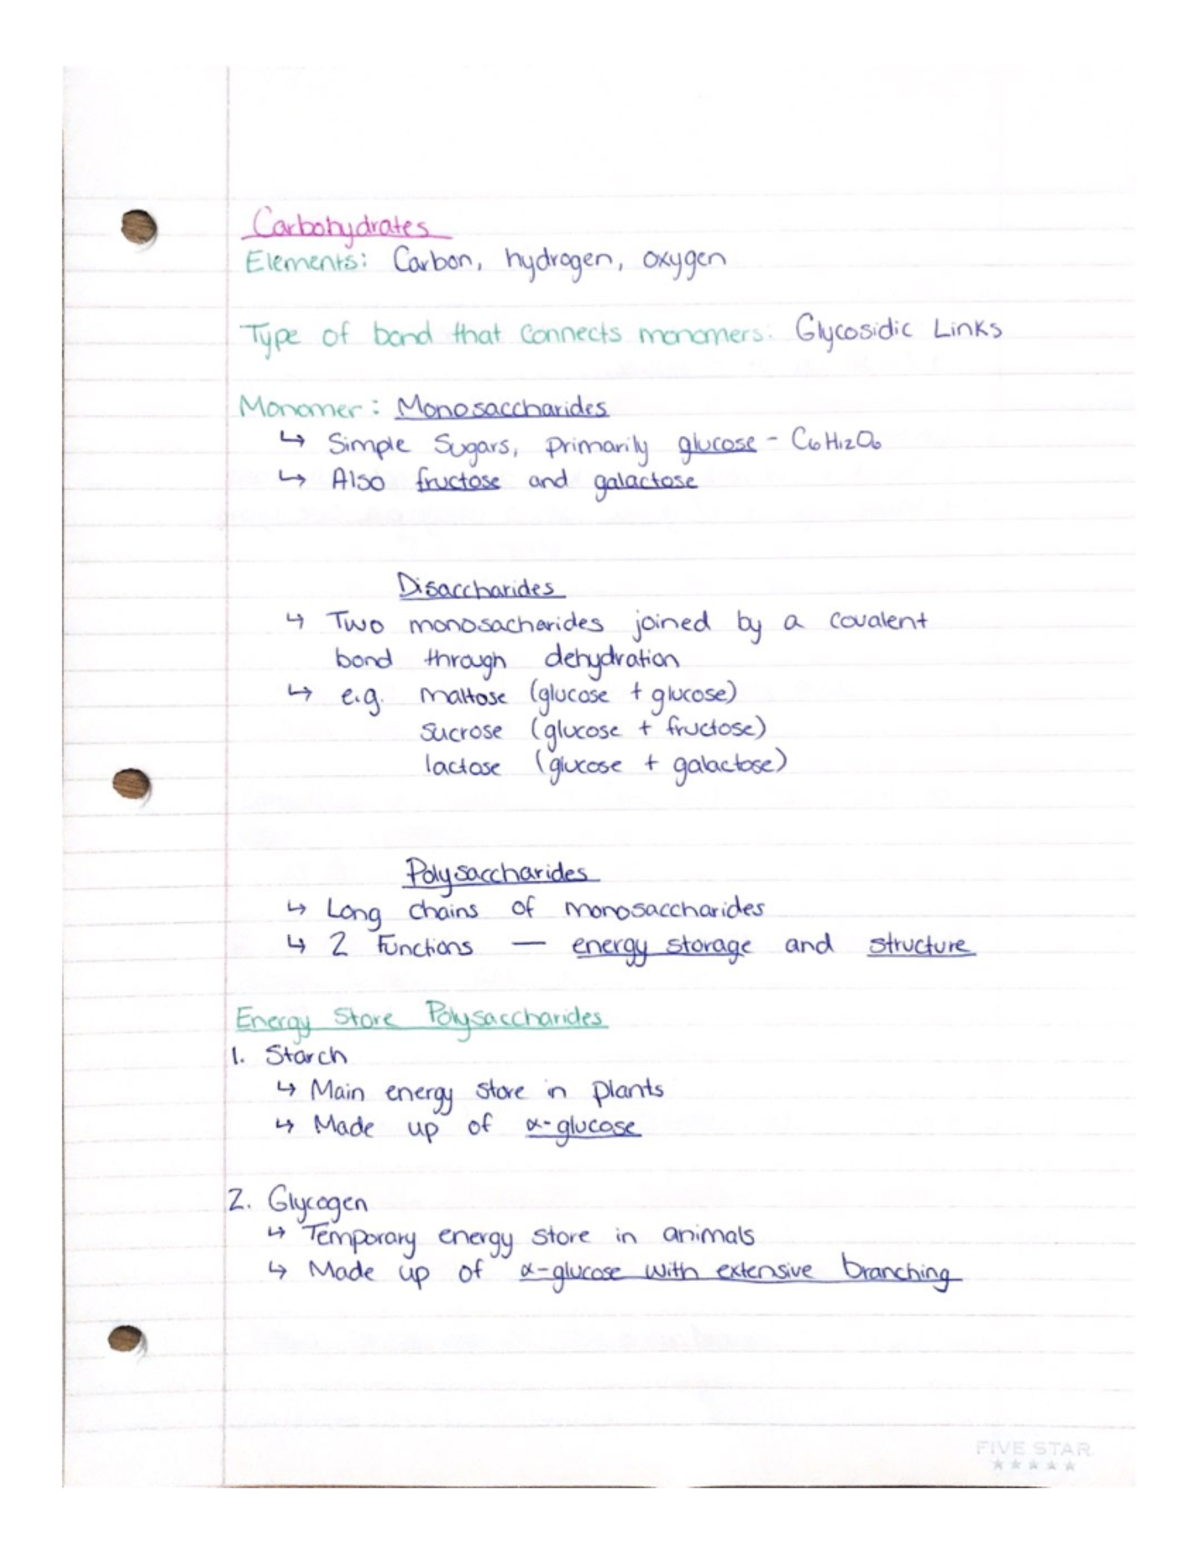 Carbohydrates
Elements: Carbon, hydrogen, oxygen
Type of bond that connects monomers: Glycosidic Links
Monomer: Monosaccharides
↳ Simple Sugars, primarily glucose - C6H12O6
↳ Also fructose and galactose
Disaccharides
↳ Two monosacharides joined by a covalent
bond through dehydration
↳ e.g. maltose (glucose + glucose)
sucrose (glucose + fructose)
lactose (glucose + galactose)
Polysaccharides
↳ Long chains of monosaccharides
↳ 2 Functions — energy storage and structure
Energy Store Polysaccharides
1. Starch
↳ Main energy store in plants
↳ Made up of α-glucose
2. Glycogen
↳ Temporary energy store in animals
↳ Made up of α-glucose with extensive branching
FIVE STAR
★★★★★